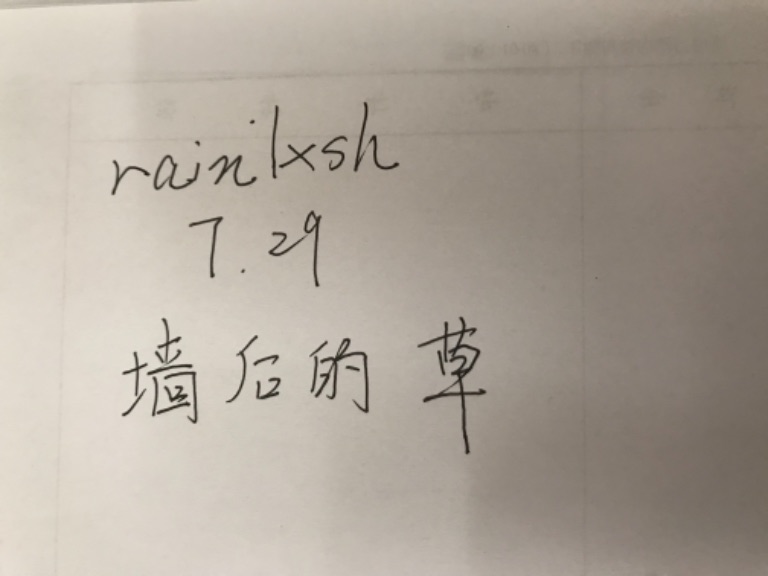 rainlxsh
7.29
墙后的草